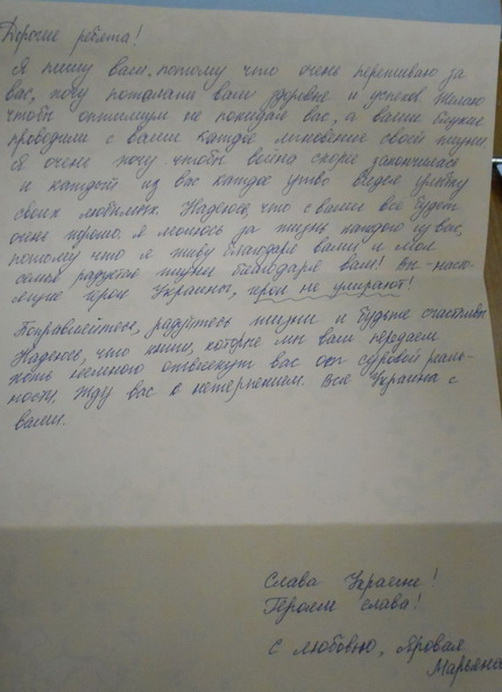 Дорогие ребята!
Я пишу вам, потому что очень переживаю за
вас, хочу пожелать вам здоровье и успехов. Желаю
чтобы оптимизм не покидал вас, а ваши близкие
проводили с вами каждое мгновение своей жизни.
Я очень хочу чтобы война скорее закончилась
и каждый из вас каждое утро видел улыбку
своих любимых. Надеюсь, что с вами всё будет
очень хорошо. Я молюсь за жизнь каждого из вас,
потому что я живу благодаря вам! и моя
семья радуется жизни благодаря вам! Вы - насто-
ящие герои Украины, герои не умирают!
Поправляйтесь, радуйтесь жизни и будьте счастливы
Надеюсь, что книги, которые мы вам передаем
хоть немного отвлекут вас от суровой реаль-
ности, Жду вас с нетерпением. Вся Украина с
вами.
Слава Украине!
Героям слава!
С любовью, Яровая
Марьяна